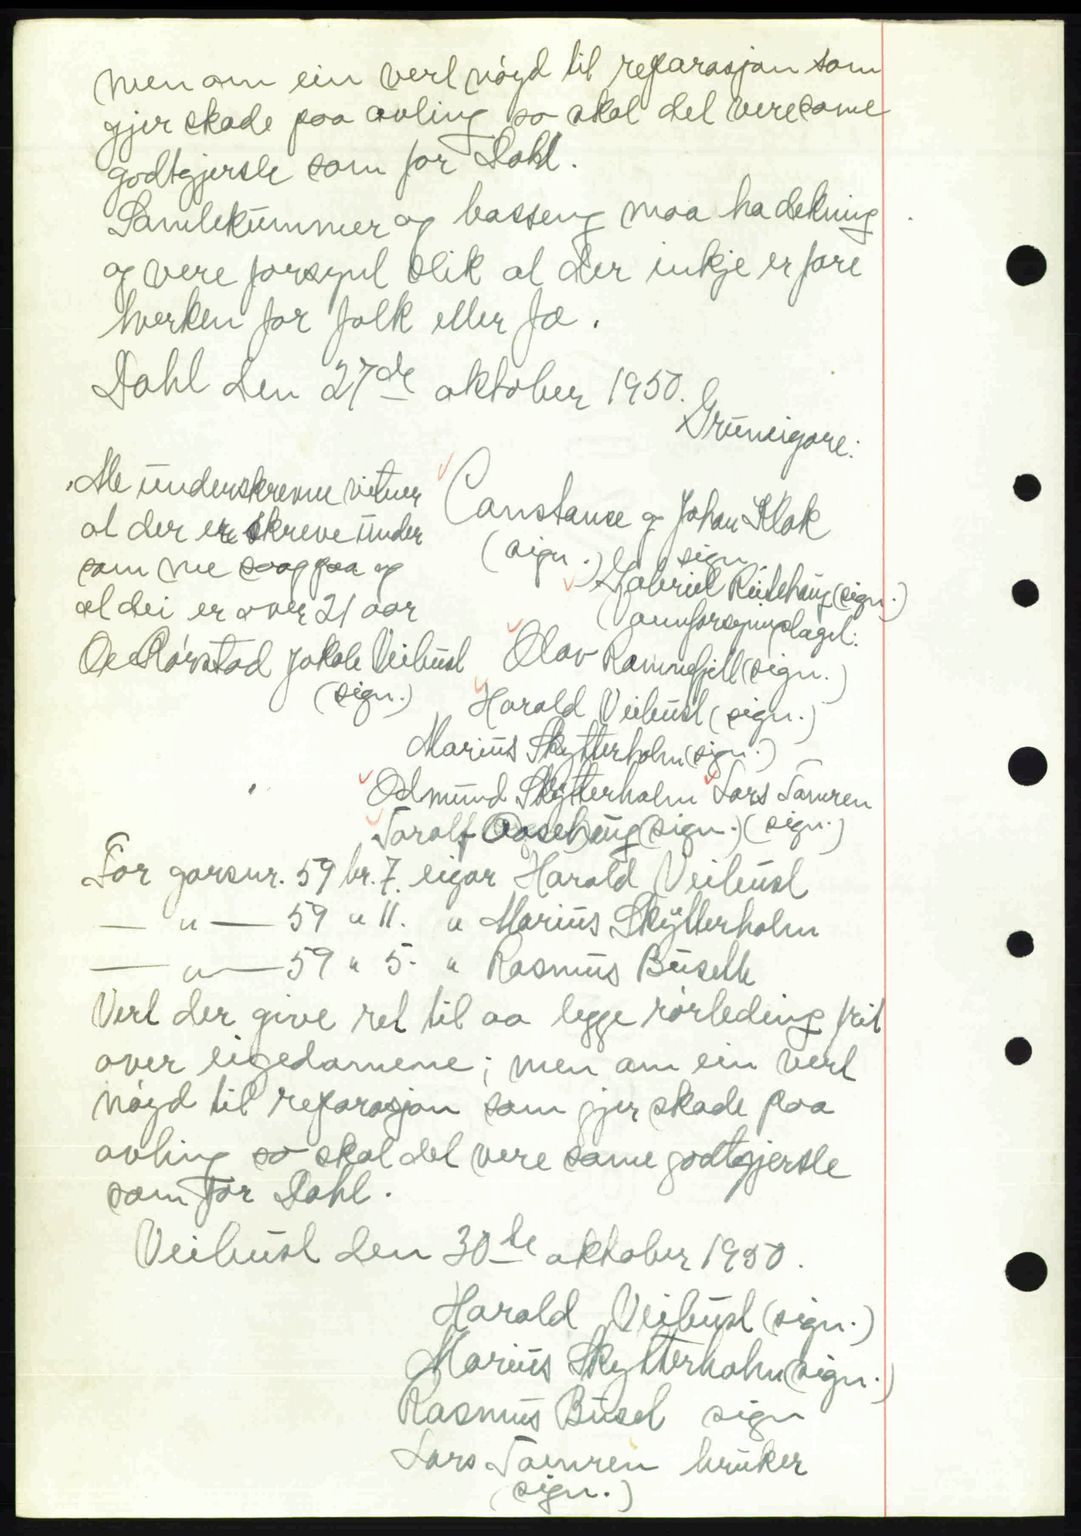 men om ein vert nøyd til reparasjon som
gjer skade paa avling so skal det vere same
godtgjersle som for Dahl.
Samlekummer og basseng maa ha dekning
og vere forsynt slik at der inkje er fare
hverken for folk eller fæ.
Dahl den 27de oktober 1950.
Gruneigare:
Me underskrevne vitner
at der er skreve under
som me saag paa og
at dei er over 21 aar
O. Rørstad Jakob Veibust
(sign.)
Constance og Johan Klok
(sign.) sign
Gabriel Riisehaug (sign.)
Vannforsyningslaget:
Olav Ramnefjell (sign.)
Harald Veibust (sign.)
Marius Skytterholm (sign.)
Odmund Skytterholm Lars Tamren
Toralf Aasehaug (sign.) (sign.)
For garsnr. 59 br. 7. eigar Harald Veibust
— " — 59 " 11. " Marius Skytterholm
— " — 59 " 5. " Rasmus Buseth
Vert der give ret til aa legge rørleding frit
over eigedomene; men om ein vert
nøyd til reparasjon som gjer skade paa
avling so skal det vere same godtgjersle
som for Dahl.
Veibust den 30te oktober 1950.
Harald Veibust (sign.)
Marius Skytterholm (sign.)
Rasmus Buset sign
Lars Tamren bruker
(sign.)